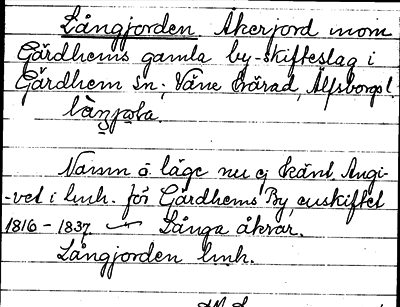 Långjorden Åkerjord inom
Gärdhems gamla by-skifteslag i
Gärdhem sn; Väne härad, Älfsborgs l.
Namn o. läge nu ej känt. Angi-
-vet i lmh. för Gärdhems By, enskiftet
1816 - 1837 Långa åkrar.
Långjorden lmh.